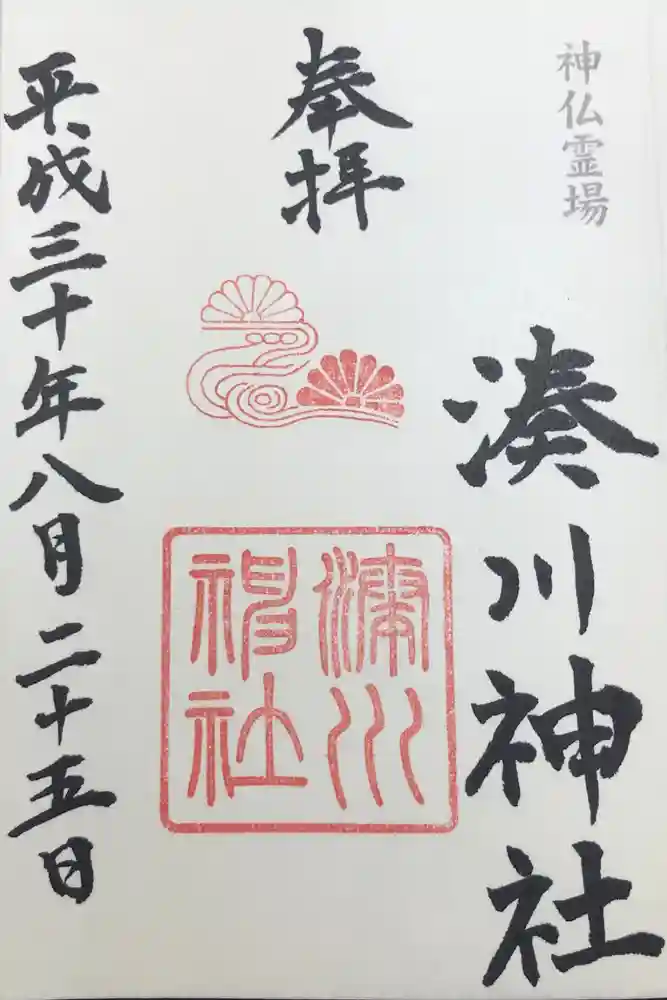 神仏霊場
湊川神社
奉拝
湊川
神社
平成三十年八月二十五日